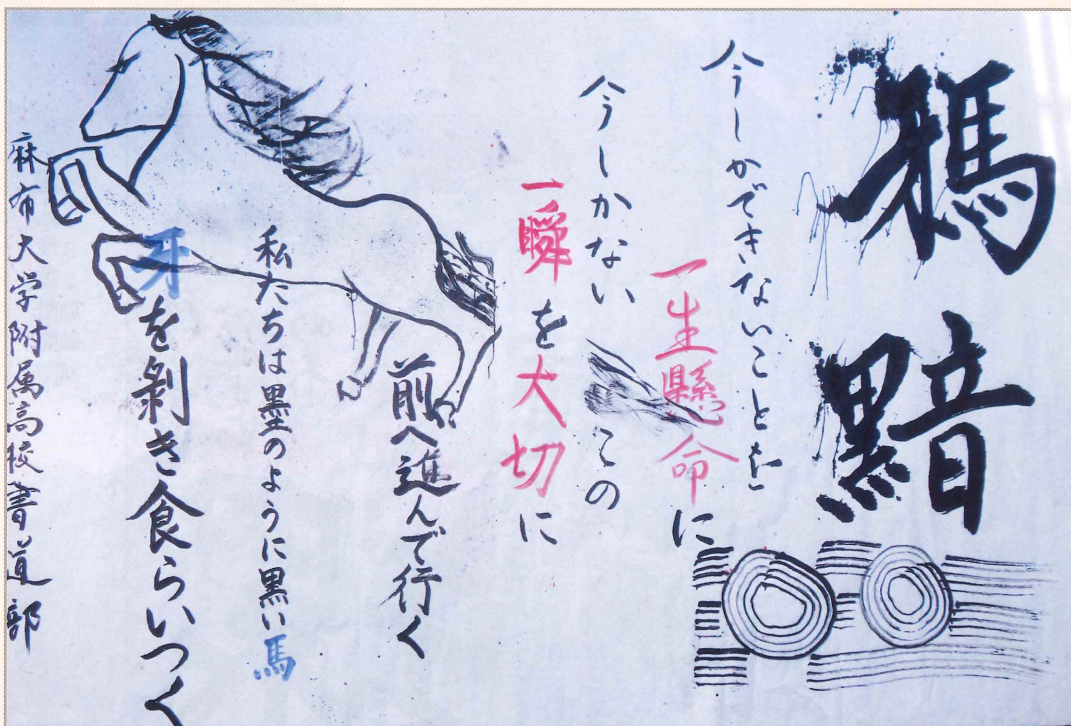 黯
今しかできないことを
一生懸命に
今しかない この
一瞬を大切に
前へ進んで行く
私たちは墨のように黒い馬
牙を剝き食らいつく
麻布大学附属高校書道部